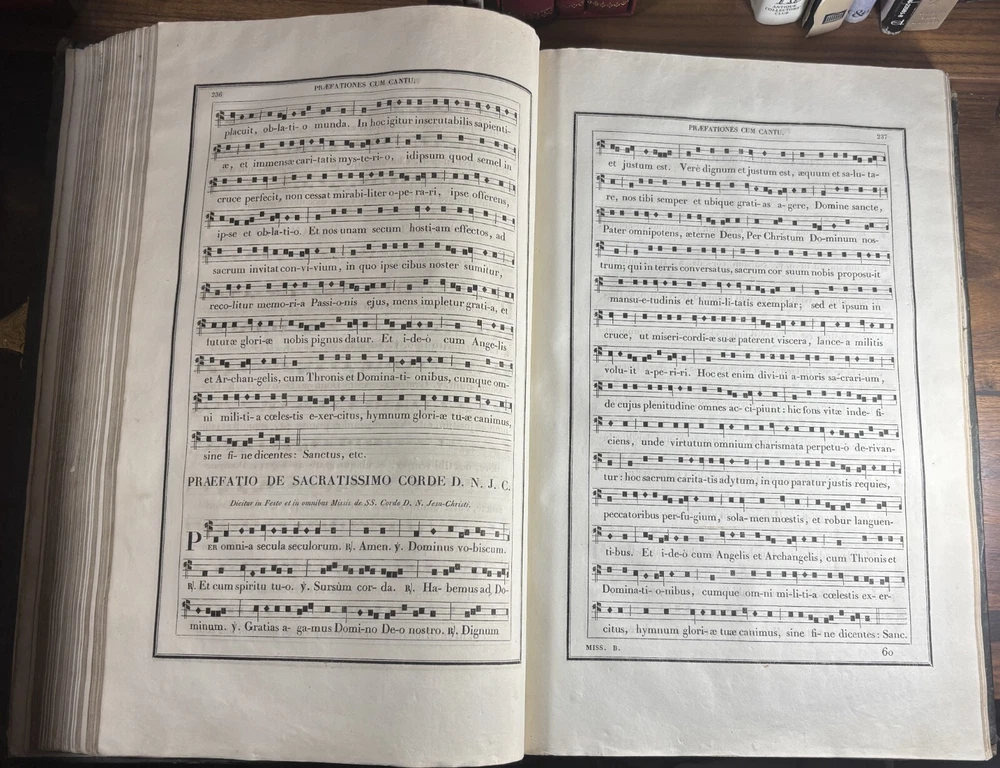 ANTIQUE
COLLECTORS'
CLUB
236
PRÆFATIONES CUM CANTU.
placuit, ob-la-ti- o munda. In hoc igitur inscrutabilis sapienti-
æ, et immensæ cari-tatis mys-te-ri-o, idipsum quod semel in
cruce perfecit, non cessat mirabi-liter o-pe-ra-ri, ipse offerens,
ip-se et ob-la-ti-o. Et nos unam secum hosti-am effectos, ad
sacrum invitat con-vi-vium, in quo ipse cibus noster sumitur,
reco-litur memo-ri-a Passi-o-nis ejus, mens impletur grati-a, et
futuræ glori-æ nobis pignus datur. Et i-de-ò cum Ange-lis
et Ar-chan-gelis, cum Thronis et Domina-ti- onibus, cumque om-
ni mili-ti-a cœles-tis e-xer-citus, hymnum glori-æ tu-æ canimus,
sine fi- ne dicentes: Sanctus, etc.
PRAEFATIO DE SACRATISSIMO CORDE D. N. J. C.
Dicitur in Festo et in omnibus Missis de SS. Corde D. N. Jesu-Christi.
PER omni-a secula seculorum. ℟. Amen. ℣. Dominus vo-biscum.
℟. Et cum spiritu tu-o. ℣. Sursùm cor- da. ℟. Ha- bemus ad Do-
minum. ℣. Gratias a- ga-mus Domi-no De-o nostro. ℟. Dignum
PRÆFATIONES CUM CANTU.
237
et justum est. Verè dignum et justum est, æquum et sa-lu-ta-
re, nos tibi semper et ubique grati-as a-gere, Domine sancte,
Pater omnipotens, æterne Deus, Per Christum Do-minum nos-
trum; qui in terris conversatus, sacrum cor suum nobis proposu-it
mansu-e-tudinis et humi-li-tatis exemplar; sed et ipsum in
cruce, ut miseri-cordi-æ su-æ paterent viscera, lance-a militis
volu-it a-pe-ri-ri. Hoc est enim divi-ni a-moris sa-crari-um,
de cujus plenitudine omnes ac-ci-piunt: hic fons vitæ inde- fi-
ciens, unde virtutum omnium charismata perpetu-ò de-rivan-
tur: hoc sacrum carita-tis adytum, in quo paratur justis requies,
peccatoribus per-fu-gium, sola-men mœstis, et robur languen-
ti-bus. Et i-de-ò cum Angelis et Archangelis, cum Thronis et
Domina-ti-o-nibus, cumque om-ni mi-li-ti-a cœlestis ex-er-
citus, hymnum glori-æ tuæ canimus, sine fi-ne dicentes: Sanc.
MISS. B.
60